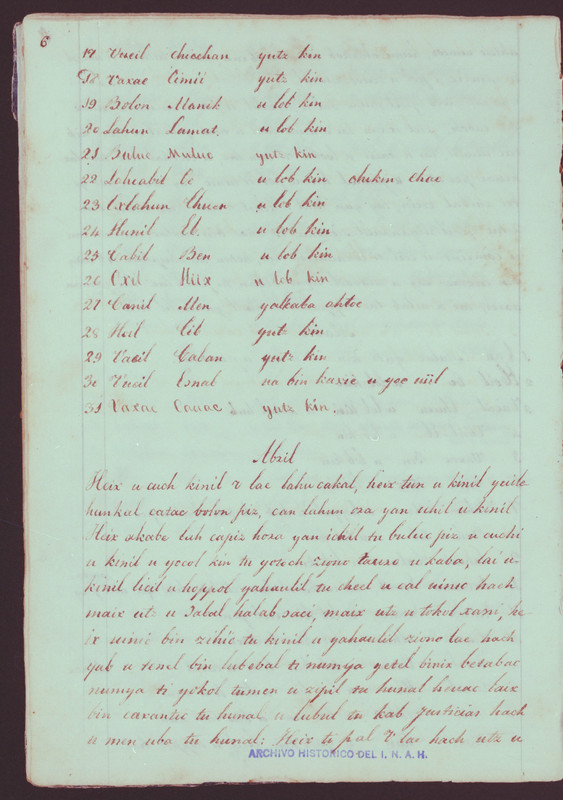 6
17 Vucil chicchan yutz kin
18 Vaxac Cimii yutz kin
19 Bolon Manik u lob kin
20 Lahun Lamat u lob kin
21 Buluc Muluc yutz kin
22 Lahcabil Oc u lob kin chikin chac
23 Oxlahun Chuen u lob kin
24 Hunil Eb u lob kin
25 Cabil Ben u lob kin
26 Oxil Hiix u lob kin
27 Canil Men yalkaba ahtoc
28 Hoil Cib yutz kin
29 Vacil Caban yutz kin
30 Vucil Esnal na bin kaxic u yoc
31 Vaxac Cauac yutz kin.
Abril
Heix u cuch kinil lae lahu cakal, heix tun u kinil
hunkal catac bolon piz, can lahun ora yan ichil u kinil
Heix akabe lah capiz hora yan ichil tu buluc piz u cuchi
u kinil u yocol kin tu yotoch tauro u kaba, lai u
kinil licil u hoppol yahaulil tu cal uinic hach
maix utz u halab, maix utz u tokol xani, he
ix uinic bin zihic tu kinil u yahaulil ziono lae hach
yab u bin lubebal ti numya yetel binix
numya ti yokol tumen u zipil tu hunal laix
bin tu hunal u lubul tu kab justicias hach
u men uba tu hunal: Heix ti pal lae hach utz u
ARCHIVO HISTORICO DEL I. N. A. H.